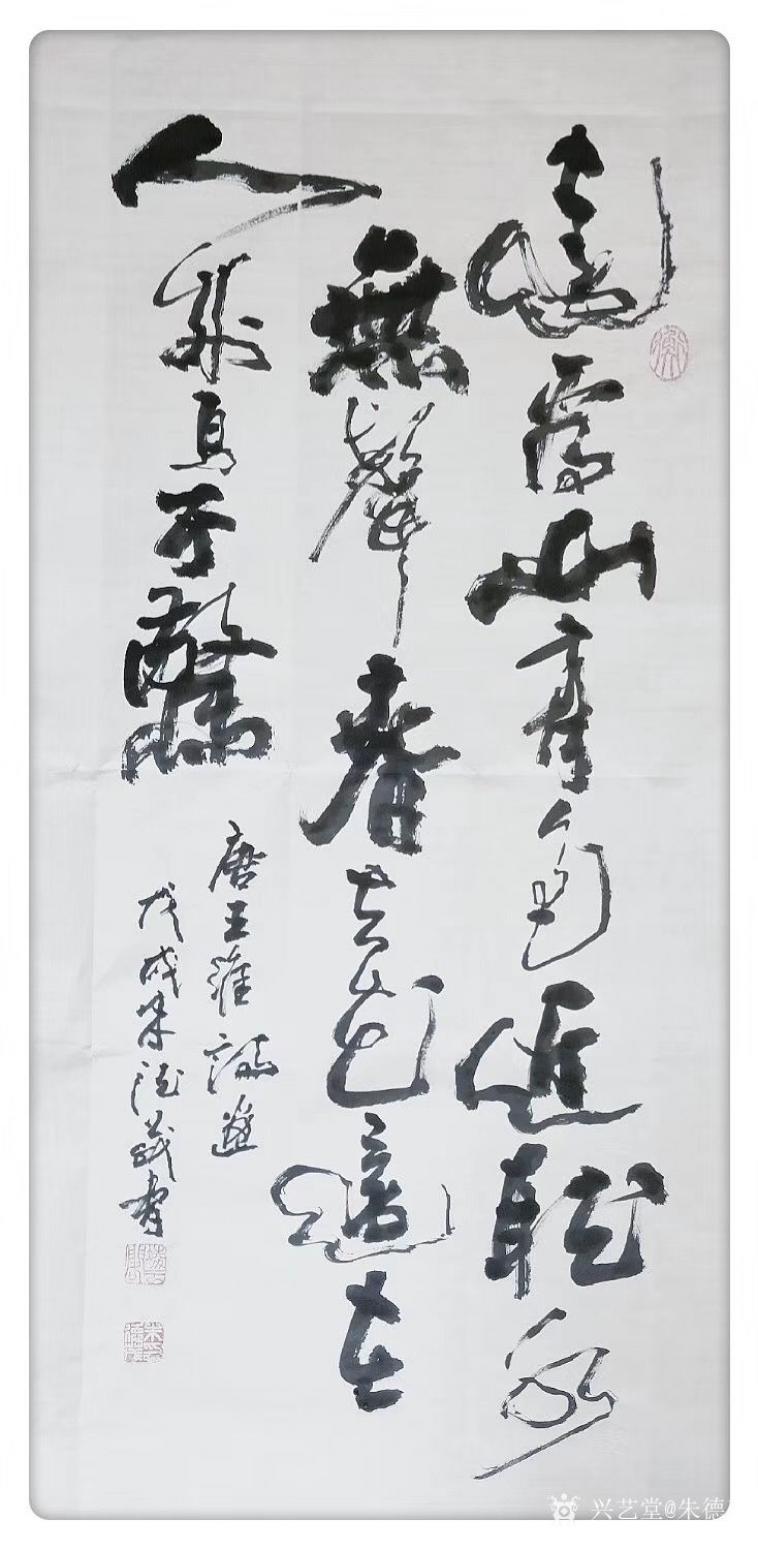 遠看山有色近聽水
無聲春去花還在
人來鳥不驚
唐王維詩
戊戌朱德書
兴艺堂@朱德